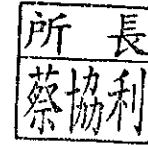 所長
蔡協利